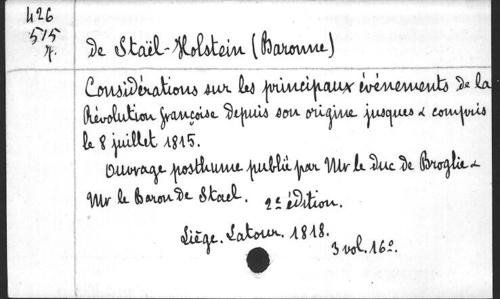 426
515
7.
de Staël-Holstein (Baronne)
Considérations sur les principaux événements de la
Révolution française depuis son origine jusques & compris
le 8 juillet 1815.
Ouvrage posthume publié par Mr le duc de Broglie &
Mr le Baron de Stael. 2e édition.
Liège. Latour. 1818.
3 vol. 16o.